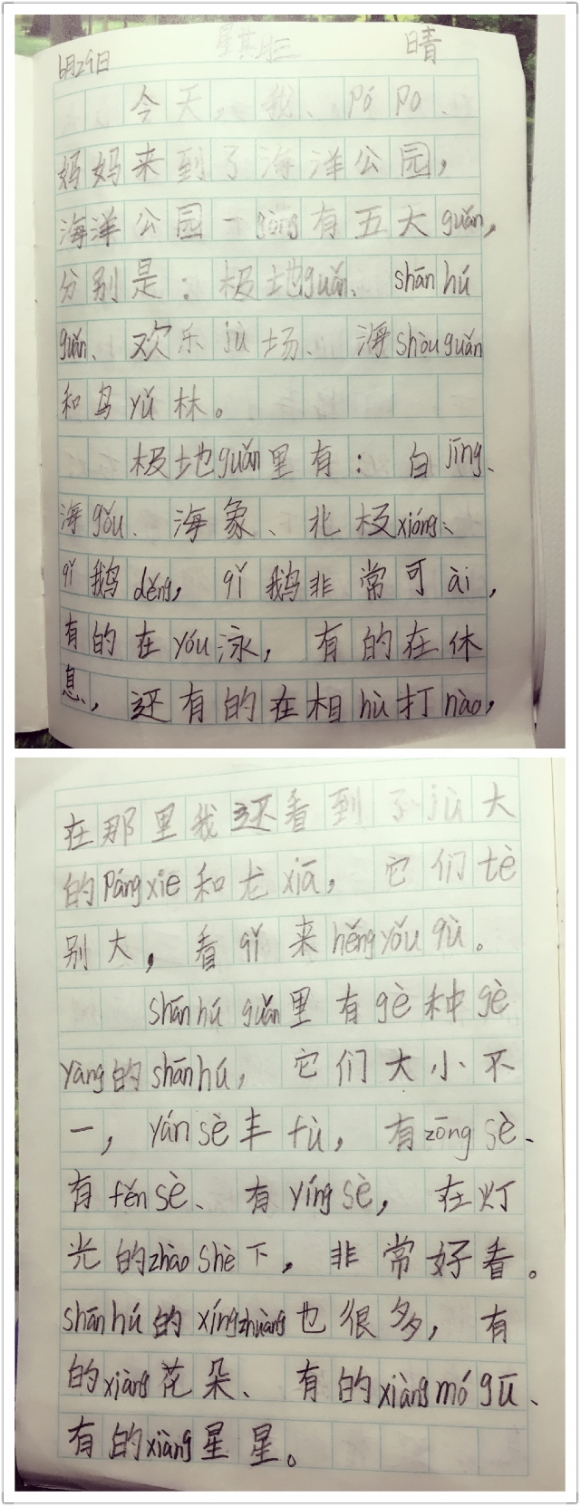 6月29日 星其三 晴
今天,我、pó po、
妈妈来到了海洋公园,
海洋公园一gòng有五大guǎn,
分别是:极地guǎn、shān hú
guǎn、欢乐jù场、海shòu guǎn
和鸟yǔ林。
极地guǎn里有:白jīng、
海gǒu、海象、北极xióng、
qǐ鹅děng,qǐ鹅非常可ài,
有的在yóu泳,有的在休
息,还有的在相hù打nào,
在那里我还看到了jù大
的Páng xie和龙xiā,它们tè
别大,看qǐ来hěng yǒu qù。
shān hú guǎn里有gè种gè
yàng的shān hú,它们大小不
一,yán sè丰fù,有zōng sè、
有fěn sè、有yíng sè,在灯
光的zhào shè下,非常好看。
shān hú的xíng zhuàng也很多,有
的xiàng花朵、有的xiàng mó gū、
有的xiàng星星。